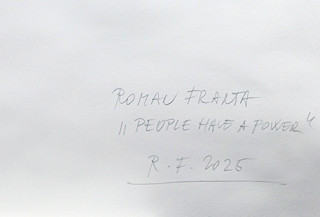 ROMAN FRANTA
„ PEOPLE HAVE A POWER “
R. F. 2025